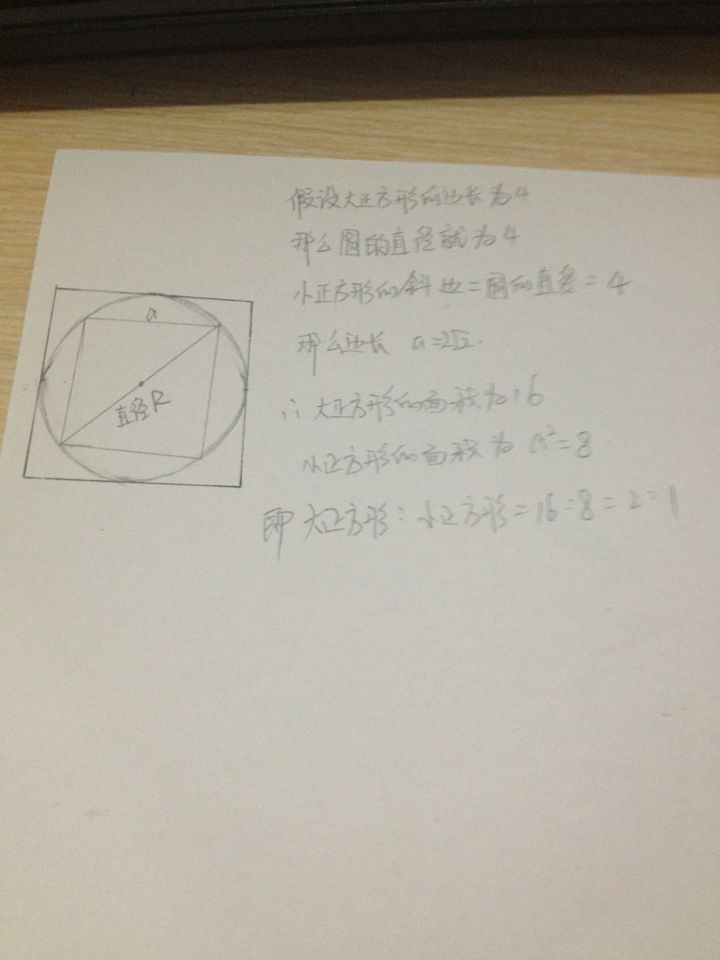 假设大正方形的边长为4
那么圆的直径就为4
小正方形的斜边=圆的直径=4
那么边长 a=2√2.
∴大正方形的面积为16
小正方形的面积为 a²=8.
即 大正方形:小正方形=16:8=2:1
a
直径R